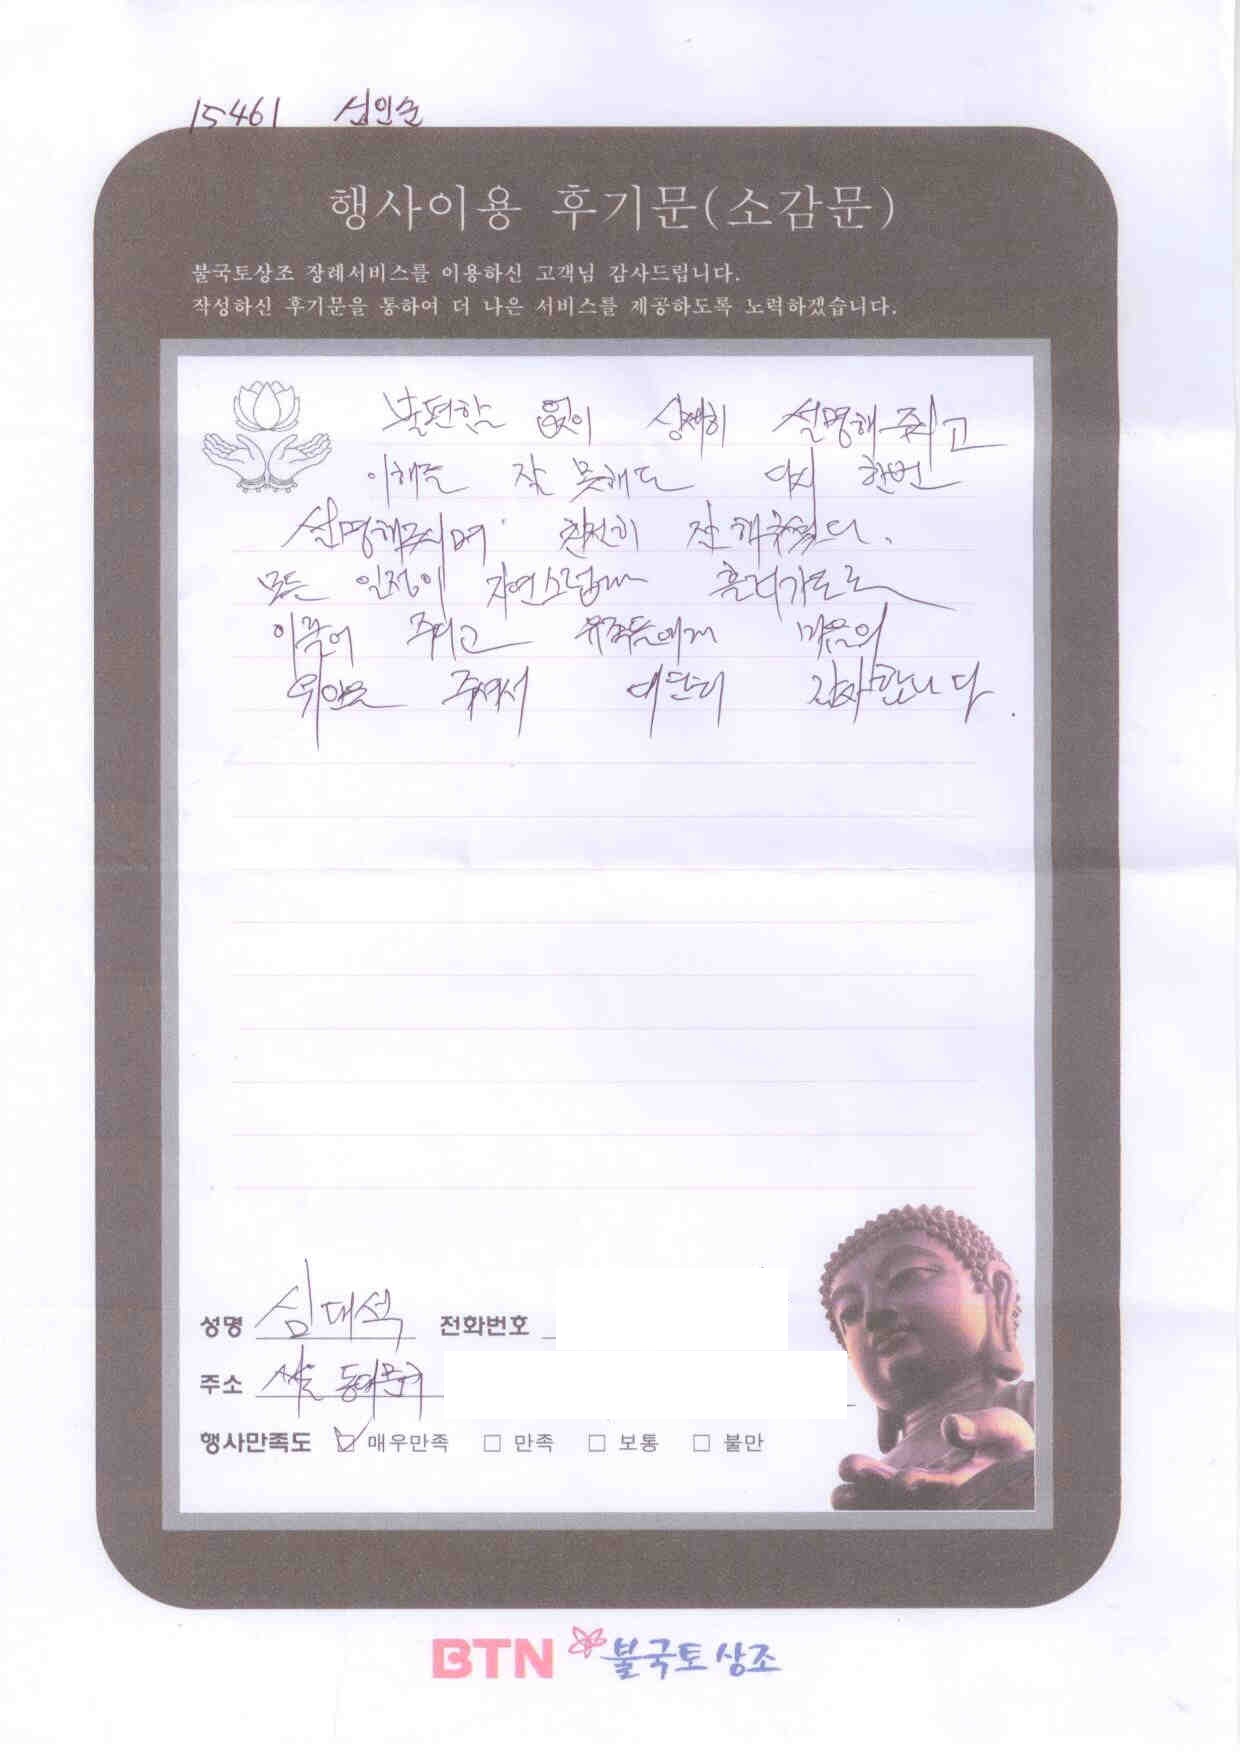 15461 심인순
행사이용 후기문(소감문)
불국토상조 장례서비스를 이용하신 고객님 감사드립니다.
작성하신 후기문을 통하여 더 나은 서비스를 제공하도록 노력하겠습니다.
불편함 없이 상세히 설명해 주시고
이해를 잘 못해도 다시 한번
설명해주시며 친절히 잘 해주셨다.
모든 일정이 자연스럽게 흘러가도록
이끌어 주시고 유족들에게 마음의
위안을 주셔서 대단히 감사합니다.
성명 심대석 전화번호
주소 서울 동대문구
행사만족도 매우만족 만족 보통 불만
BTN 불국토상조